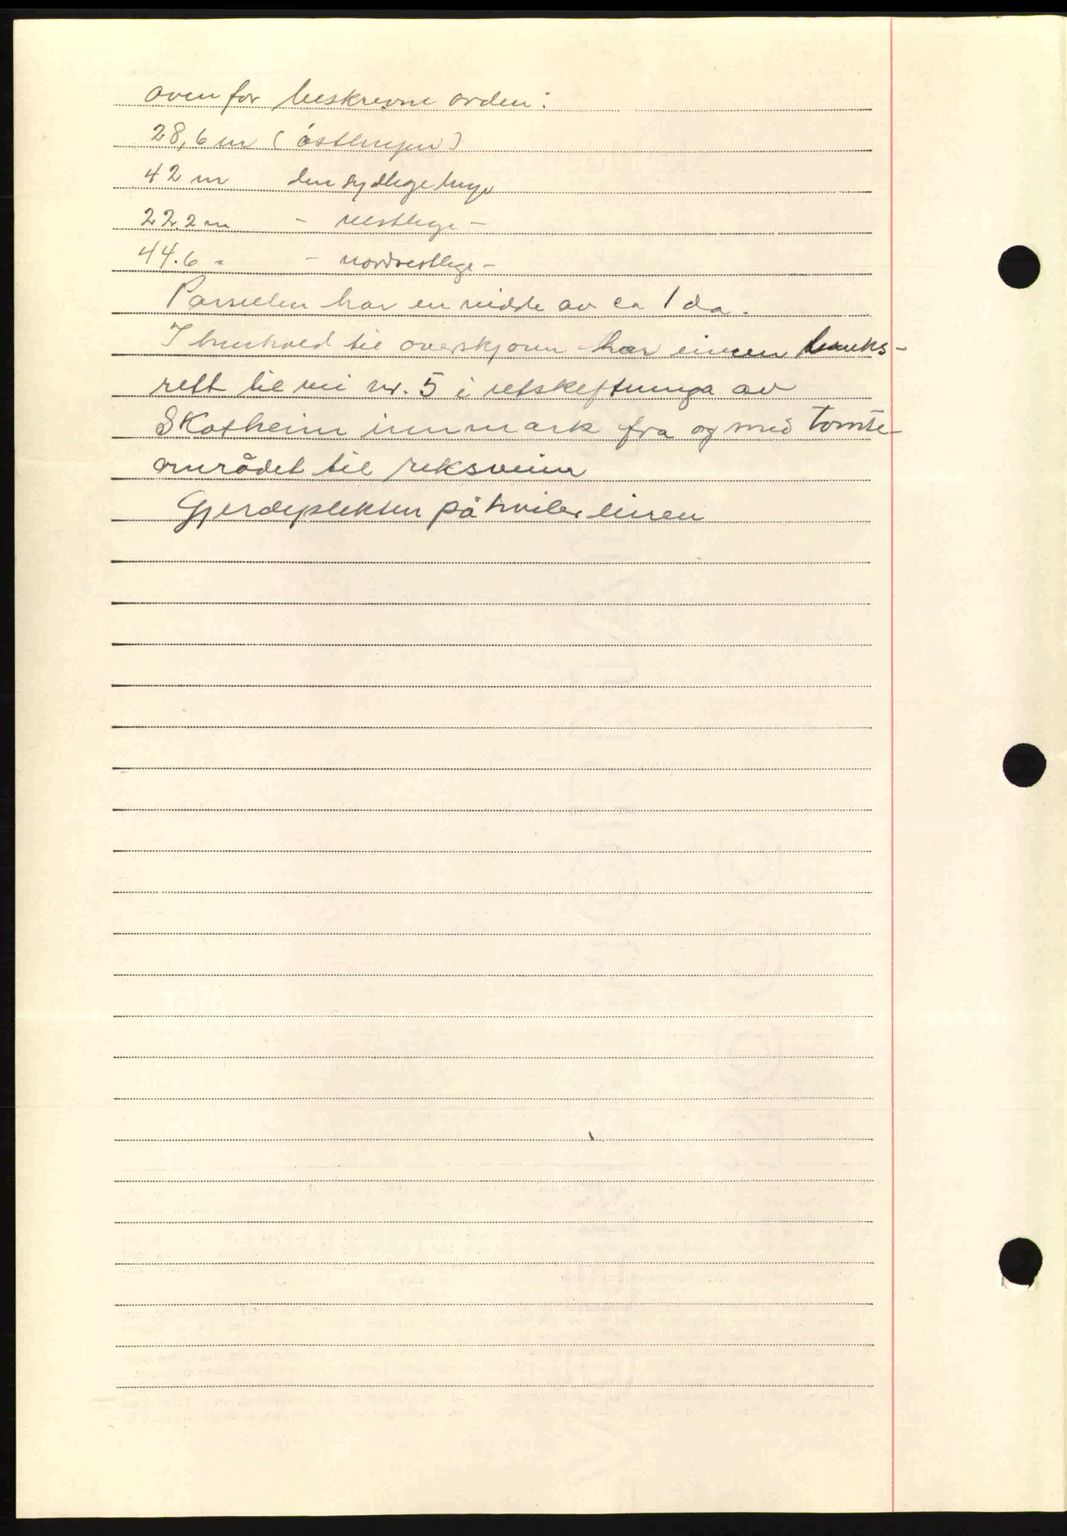 ovenfor beskrevne orden:
28,6 m (østlinjen)
42 m den sydlige linje
22.2 m - vestlige -
44.6 " - nordvestlige -
Parsellen har en vidde av ca 1 da.
I henhold til overskjønn har eieren bruks-
rett til vei nr. 5 i utskiftninga av
Skotheim innmark fra og med tomte-
området til riksveien
Gjerdeplikten påhviler eieren